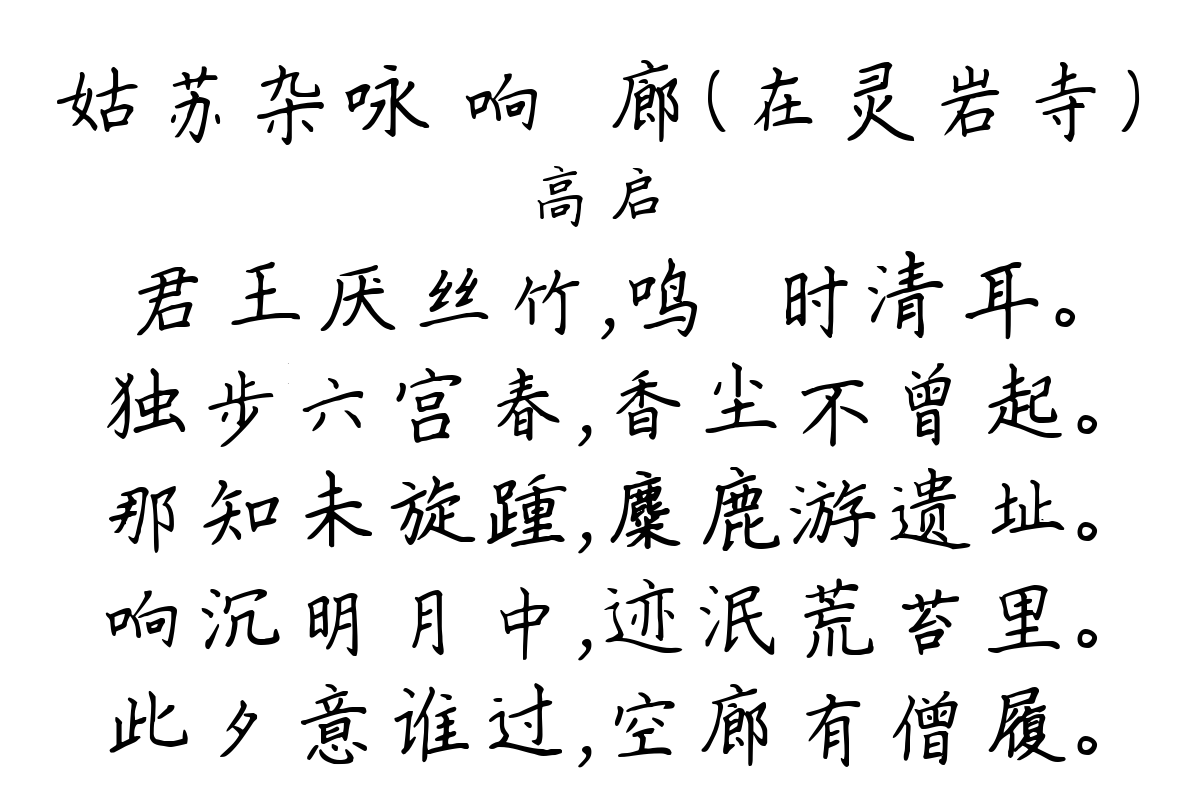 姑苏杂咏 响 廊(在灵岩寺)
高启
君王厌丝竹,鸣 时清耳。
独步六宫春,香尘不曾起。
那知未旋踵,麋鹿游遗址。
响沉明月中,迹泯荒苔里。
此夕意谁过,空廊有僧履。